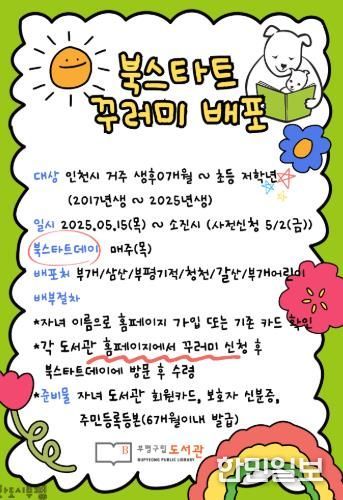 북스타트
꾸러미 배포
대상 인천시 거주 생후0개월 ~ 초등 저학년
(2017년생 ~ 2025년생)
일시 2025.05.15(목) ~ 소진시 (사전신청 5/2(금))
북스타트데이 매주(목)
배포처 부개/삼산/부평기적/청천/갈산/부개어린이
배부절차
*자녀 이름으로 홈페이지 가입 또는 기존 카드 확인
*각 도서관 홈페이지에서 꾸러미 신청 후
북스타트데이에 방문 후 수령
*준비물 자녀 도서관 회원카드, 보호자 신분증,
주민등록등본(6개월이내 발급)
B 부평구립 도서관
BUPYEONG PUBLIC LIBRARY
한민일보